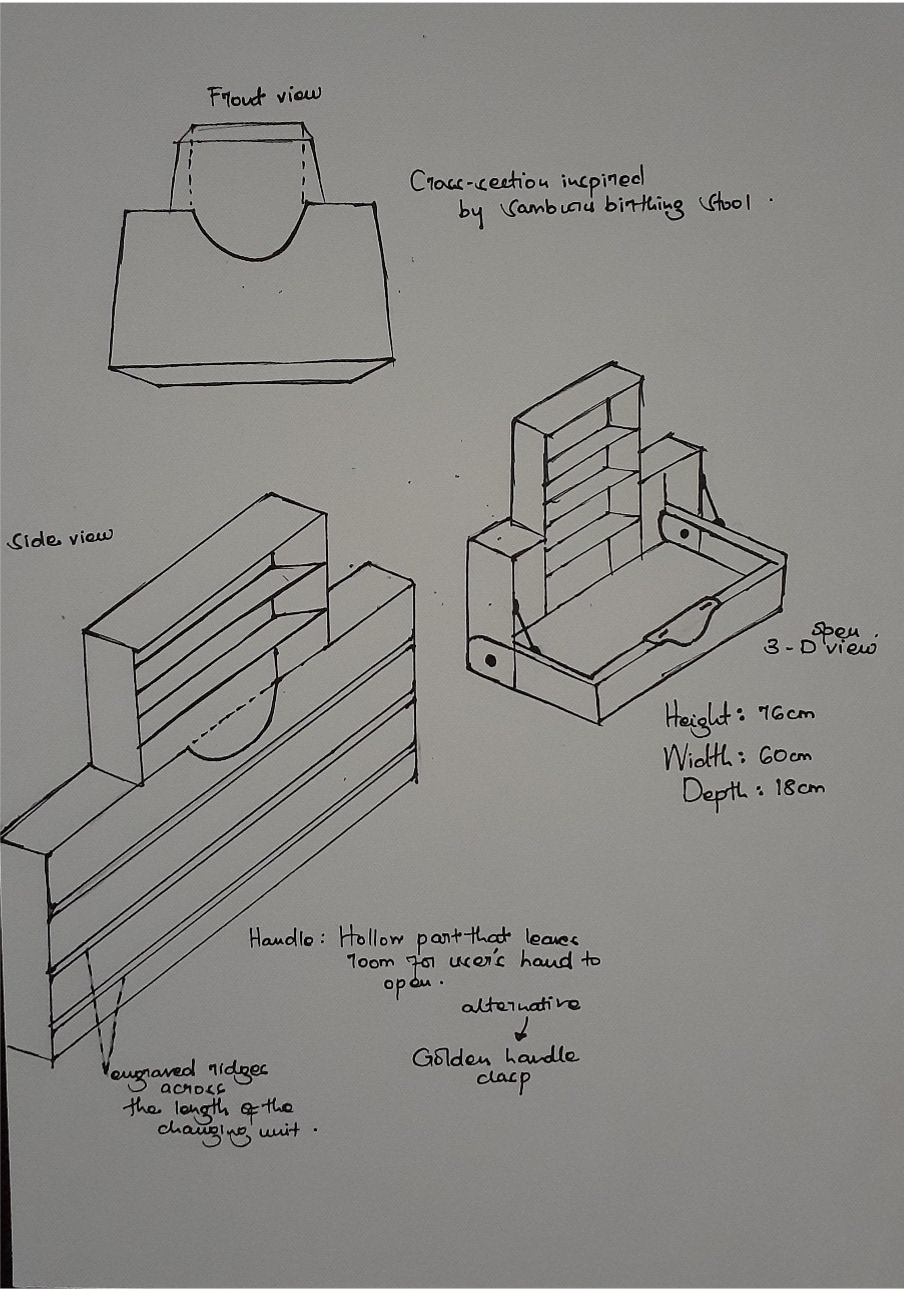 Front view
Cross-section inspired
by Samburu birthing stool.
Side view
open
3-D view.
Height: 76cm
Width: 60cm
Depth: 18cm
Handle: Hollow part that leaves
room for user's hand to
open.
alternative
Golden handle
clasp
engraved ridges
across
the length of the
changing unit.